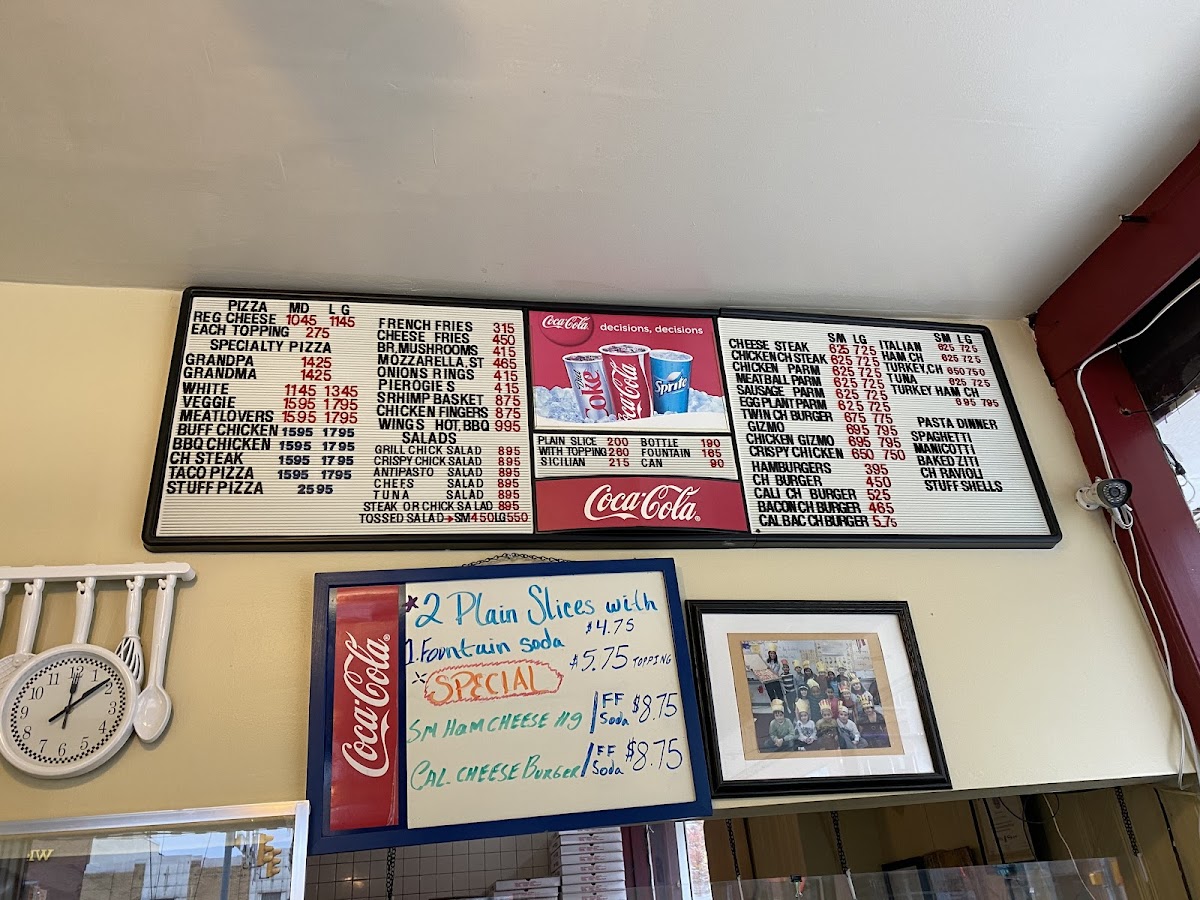 PIZZA MD LG
REG CHEESE 1045 1145
EACH TOPPING 275
SPECIALTY PIZZA
GRANDPA 1425
GRANDMA 1425
WHITE 1145 1345
VEGGIE 1595 1795
MEATLOVERS 1595 1795
BUFF CHICKEN 1595 1795
BBQ CHICKEN 1595 1795
CH STEAK 1595 1795
TACO PIZZA 1595 1795
STUFF PIZZA 2595
FRENCH FRIES 315
CHEESE FRIES 450
BR.MUSHROOMS 415
MOZZARELLA.ST 465
ONIONS RINGS 415
PIEROGIES 415
SRHIMP BASKET 875
CHICKEN FINGERS 875
WINGS HOT.BBQ 995
SALADS
GRILL CHICK SALAD 895
CRISPY CHICK SALAD 895
ANTIPASTO SALAD 895
CHEFS SALAD 895
TUNA SALAD 895
STEAK OR CHICK SALAD 895
TOSSED SALAD→SM450LG550
Coca-Cola decisions, decisions
Diet Coke
Coca-Cola
Sprite
PLAIN SLICE 200 BOTTLE 190
WITH TOPPING 260 FOUNTAIN 165
SICILIAN 215 CAN 90
Coca-Cola
SM LG
CHEESE STEAK 625 725
CHICKEN CH STEAK 625 725
CHICKEN PARM 625 725
MEATBALL PARM 625 725
SAUSAGE PARM 625 725
EGG PLANT PARM 625 725
TWIN CH BURGER 675 775
GIZMO 695 795
CHICKEN GIZMO 695 795
CRISPY CHICKEN 650 750
HAMBURGERS 395
CH BURGER 450
CALI CH BURGER 525
BACON CH BURGER 465
CAL BAC CH BURGER 5.75
SM LG
ITALIAN 625 725
HAM CH 625 725
TURKEY,CH 650 750
TUNA 625 725
TURKEY HAM CH
695 795
PASTA DINNER
SPAGHETTI
MANICOTTI
BAKED ZITI
CH RAVIOLI
STUFF SHELLS
Coca-Cola
*2 Plain Slices with
1.Fountain soda $4.75
$5.75 TOPPING
SPECIAL
SM HAM CHEESE Hg / FF Soda $8.75
CAL. CHEESE BURGER / FF Soda $8.75
12
1
2
3
4
5
6
7
8
9
10
11